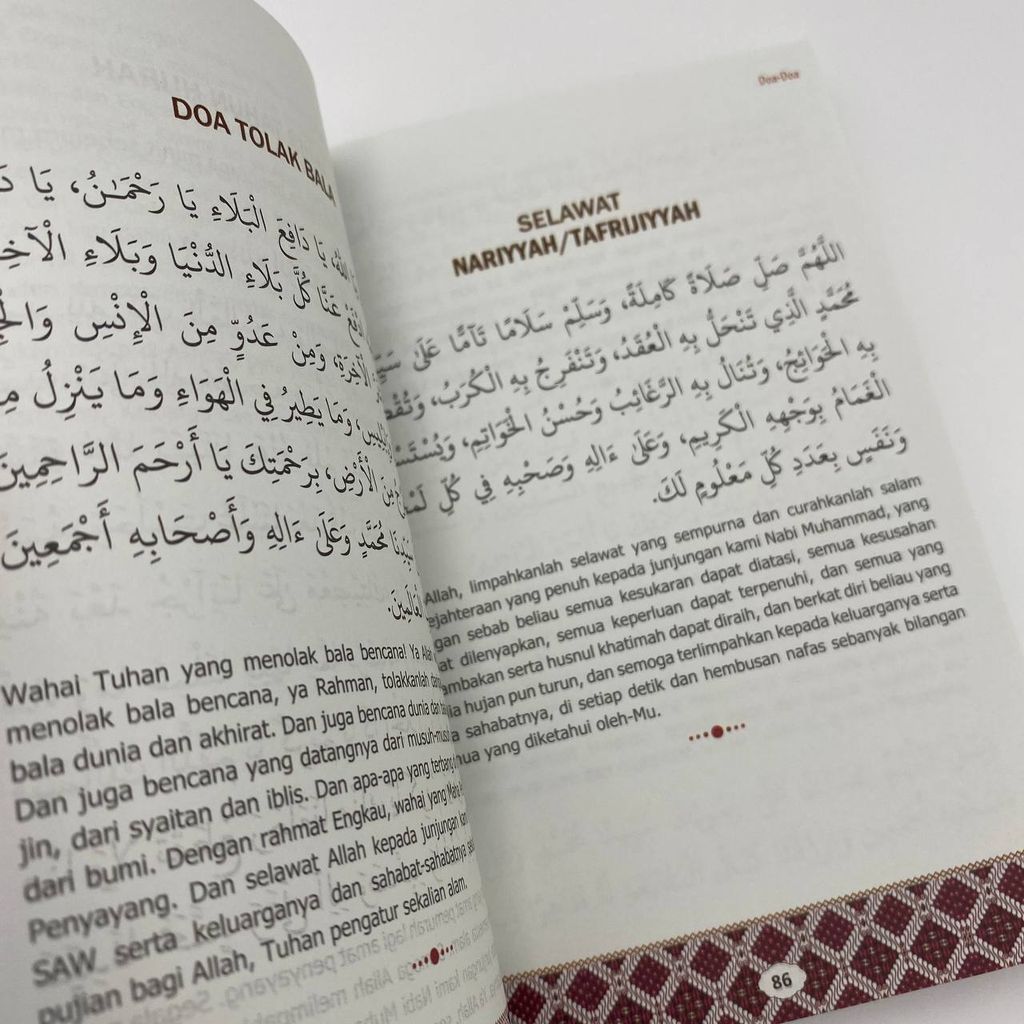 DOA TOLAK BALA
يَا دَافِعَ الْبَلَاءِ يَا رَحْمَـٰنُ، يَا
عَنَّا كُلَّ بَلَاءِ الدُّنْيَا وَبَلَاءِ
وَمِنْ عَدُوٍّ مِنَ الْإِنْسِ
وَمَا يَطِيرُ فِي الْهَوَاءِ وَمَا يَنْزِلُ
مِنَ الْأَرْضِ، بِرَحْمَتِكَ يَا أَرْحَمَ الرَّاحِمِينَ
سَيِّدِنَا مُحَمَّدٍ وَعَلَىٰ ءَالِهِ وَأَصْحَابِهِ أَجْمَعِينَ
Wahai Tuhan yang menolak bala bencana! Ya
menolak bala bencana, ya Rahman, tolakkanlah
bala dunia dan akhirat. Dan juga bencana dunia dan
Dan juga bencana yang datangnya dari
jin, dari syaitan dan iblis. Dan apa-apa yang terbang
dari bumi. Dengan rahmat Engkau, wahai yang
Penyayang. Dan selawat Allah kepada junjungan
SAW serta keluarganya dan sahabat-sahabatnya
pujian bagi Allah, Tuhan pengatur sekalian alam.
Doa-Doa
SELAWAT
NARIYYAH/TAFRIJIYYAH
اللَّهُمَّ صَلِّ صَلَاةً كَامِلَةً، وَسَلِّمْ سَلَامًا تَآمًّا عَلَىٰ
مُحَمَّدٍ الَّذِي تَنْحَلُّ بِهِ الْعُقَدُ، وَتَنْفَرِجُ بِهِ الْكُرَبُ،
بِهِ الْحَوَائِجُ، وَتُنَالُ بِهِ الرَّغَائِبُ وَحُسْنُ الْخَوَاتِمِ،
الْغَمَامُ بِوَجْهِهِ الْكَرِيمِ، وَعَلَىٰ ءَالِهِ وَصَحْبِهِ فِي كُلِّ
وَنَفَسٍ بِعَدَدِ كُلِّ مَعْلُومٍ لَكَ.
Allah, limpahkanlah selawat yang sempurna dan curahkanlah salam
yang penuh kepada junjungan kami Nabi Muhammad, yang
sebab beliau semua kesukaran dapat diatasi, semua kesusahan
dilenyapkan, semua keperluan dapat terpenuhi, dan semua yang
serta husnul khatimah dapat diraih, dan berkat diri beliau yang
hujan pun turun, dan semoga terlimpahkan kepada keluarganya serta
sahabatnya, di setiap detik dan hembusan nafas sebanyak bilangan
yang diketahui oleh-Mu.
86